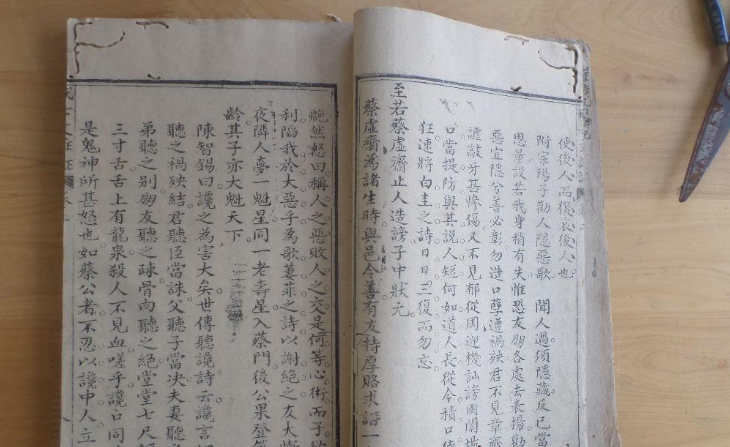 使後人而復哀後人也
附宗瑒子勸人隱惡歌 聞人過須隱藏反已當
思量設若我身稍有失惟恐友朋各處去表揚勸
惡宜隱兮善必彰勿造口孽遭禍殃君不見章
謔敲牙甚慘傷又不見郁從周逞機訕謗圖閨
口當提防與其說人短何如道人長從今積口
狂速將白圭之詩日日三復而勿忘
至若蔡虛齋止人造謗子中狀元
蔡虛齋為諸生時與邑令善有友特厚賂求譖一
艴然怒曰稱人之惡敗人之交是何等心術而子
利陷我於大惡乎為歌萋菲之詩以謝絕之友大慚
夜隣人夢一魁星同一老壽星入蔡門後公果登
齡其子亦大魁天下
陳智錫曰讒之為害大矣世傳聽讒詩云讒言
聽之禍殃結君聽臣當誅父聽子當決夫妻聽
弟聽之別朋友聽之疎骨肉聽之絕堂堂七尺
三寸舌舌上有龍泉殺人不見血嗟乎讒口同
是鬼神所甚怒也如蔡公者不忍以讒中人立